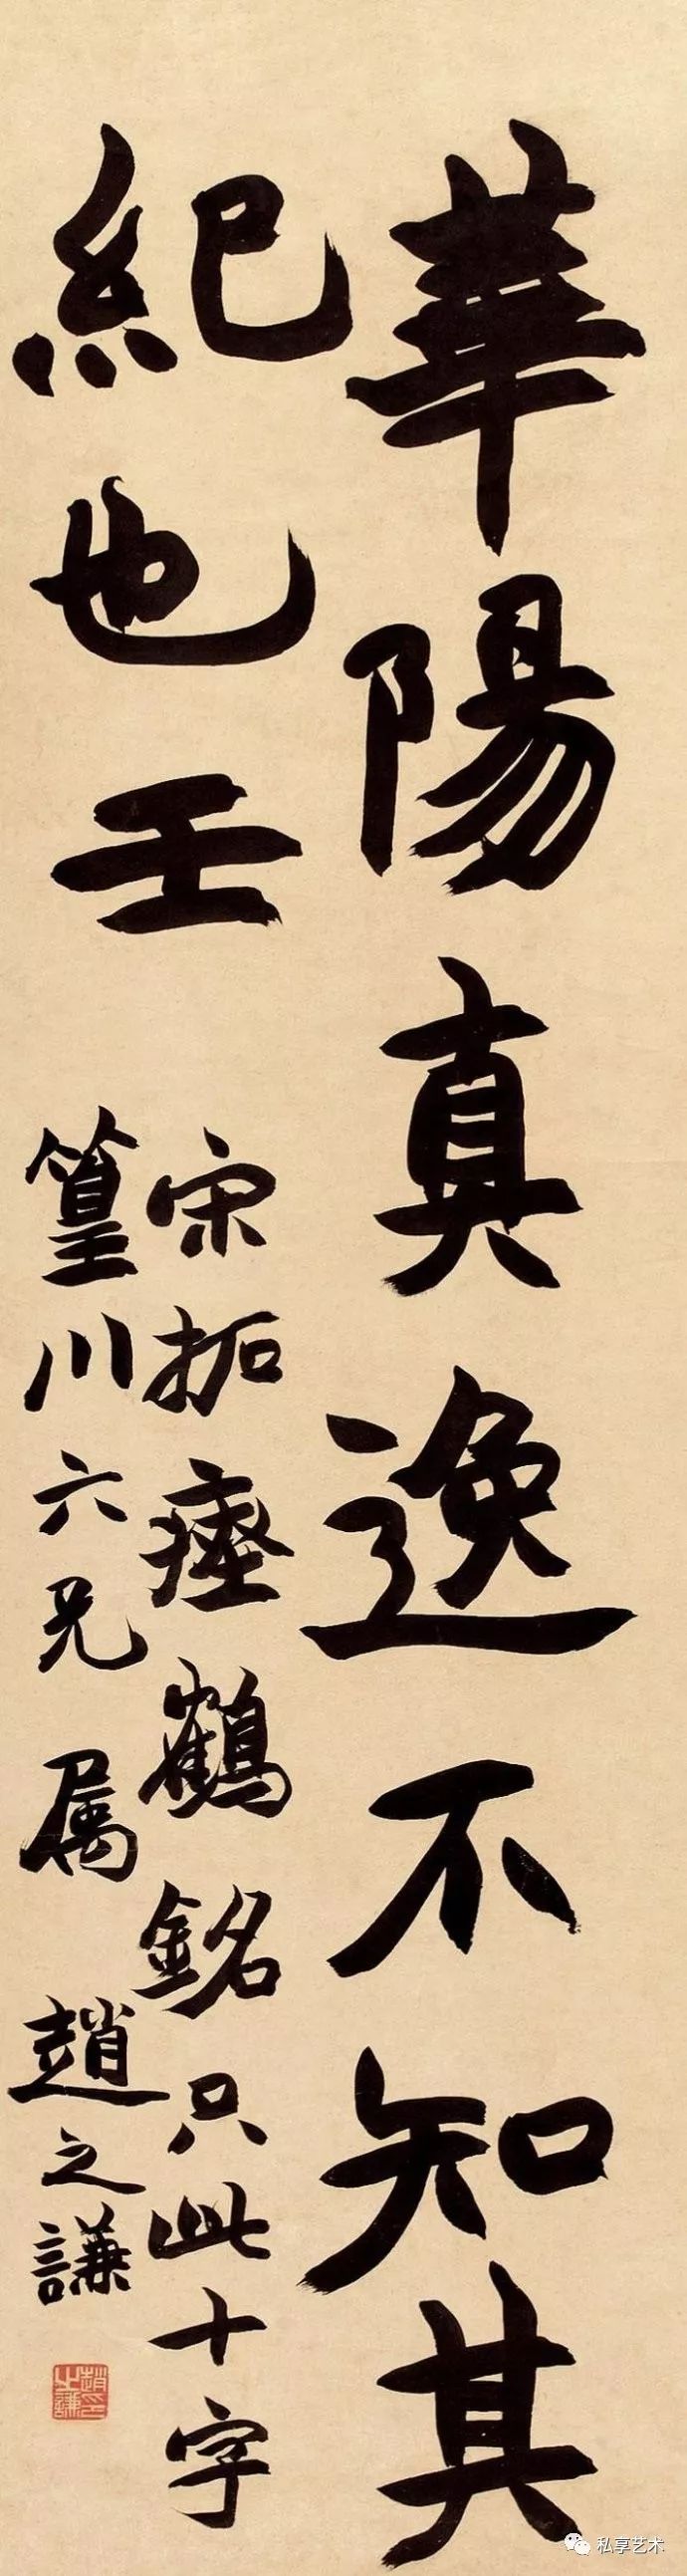 華陽真逸不知其
紀也壬
宋拓瘞鶴銘只此十字
篁川六兄属
趙之謙
趙之謙印
私享艺术